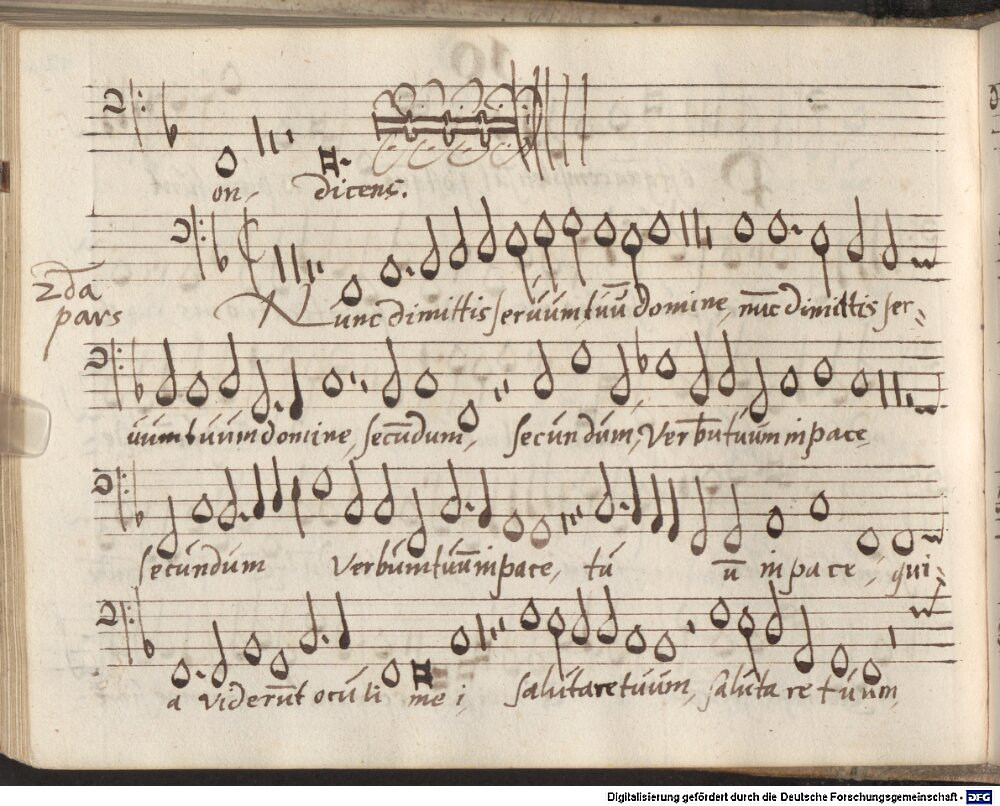 on, dicens.
2da
pars
Nunc dimittis servuum tuū domine, nūc dimittis ser-
uum tuum domine, secūdum, secundum, Verbū tuum in pace,
secundum Verbum tuū in pace, tu ū in pace, qui-
a viderūt oculi me i, salutare tuum, saluta re tuum,
Digitalisierung gefördert durch die Deutsche Forschungsgemeinschaft - DFG